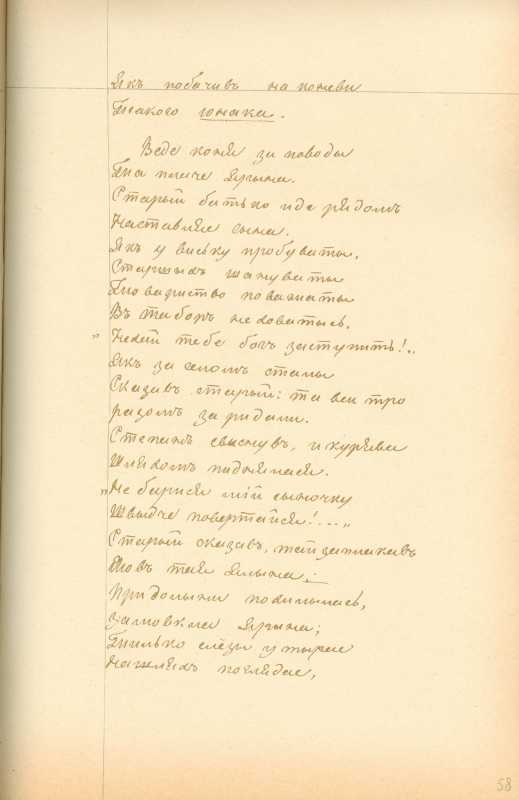 Якъ побачивъ на коневи
Такого юнака.
Веде коня за поводы
Та плаче Ярына.
Старый батько иде рядомъ
Наставляе сына.
Якъ у виську пробуваты,
Старшыхъ шануваты
Товариство поважаты
Въ таборъ не ховатысь.
„Нехай тебе богъ заступить!..
Якъ за селомъ сталы
Сказавъ старый: та вси тро
разомъ зарыдали.
Степанъ свыснувъ, и курява
Шляхомъ пиднялася.
„Не барися мій сыночку
Швыдче повертайся!...„
Старый сказавъ, тай заплакавъ
Мовъ тая ялына,
При долыни похилылась,
Замовкла Ярына;
Тилько слёзы утырае
На шляхъ поглядае,
58